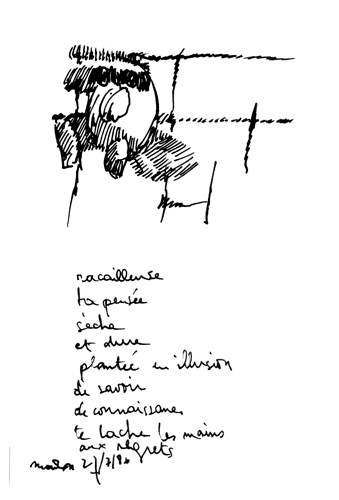 racailleuse
ta pensée
sèche
et dure
plantée en illusion
de savoir
de connaissances
te lache les mains
aux regrets
27/7/94